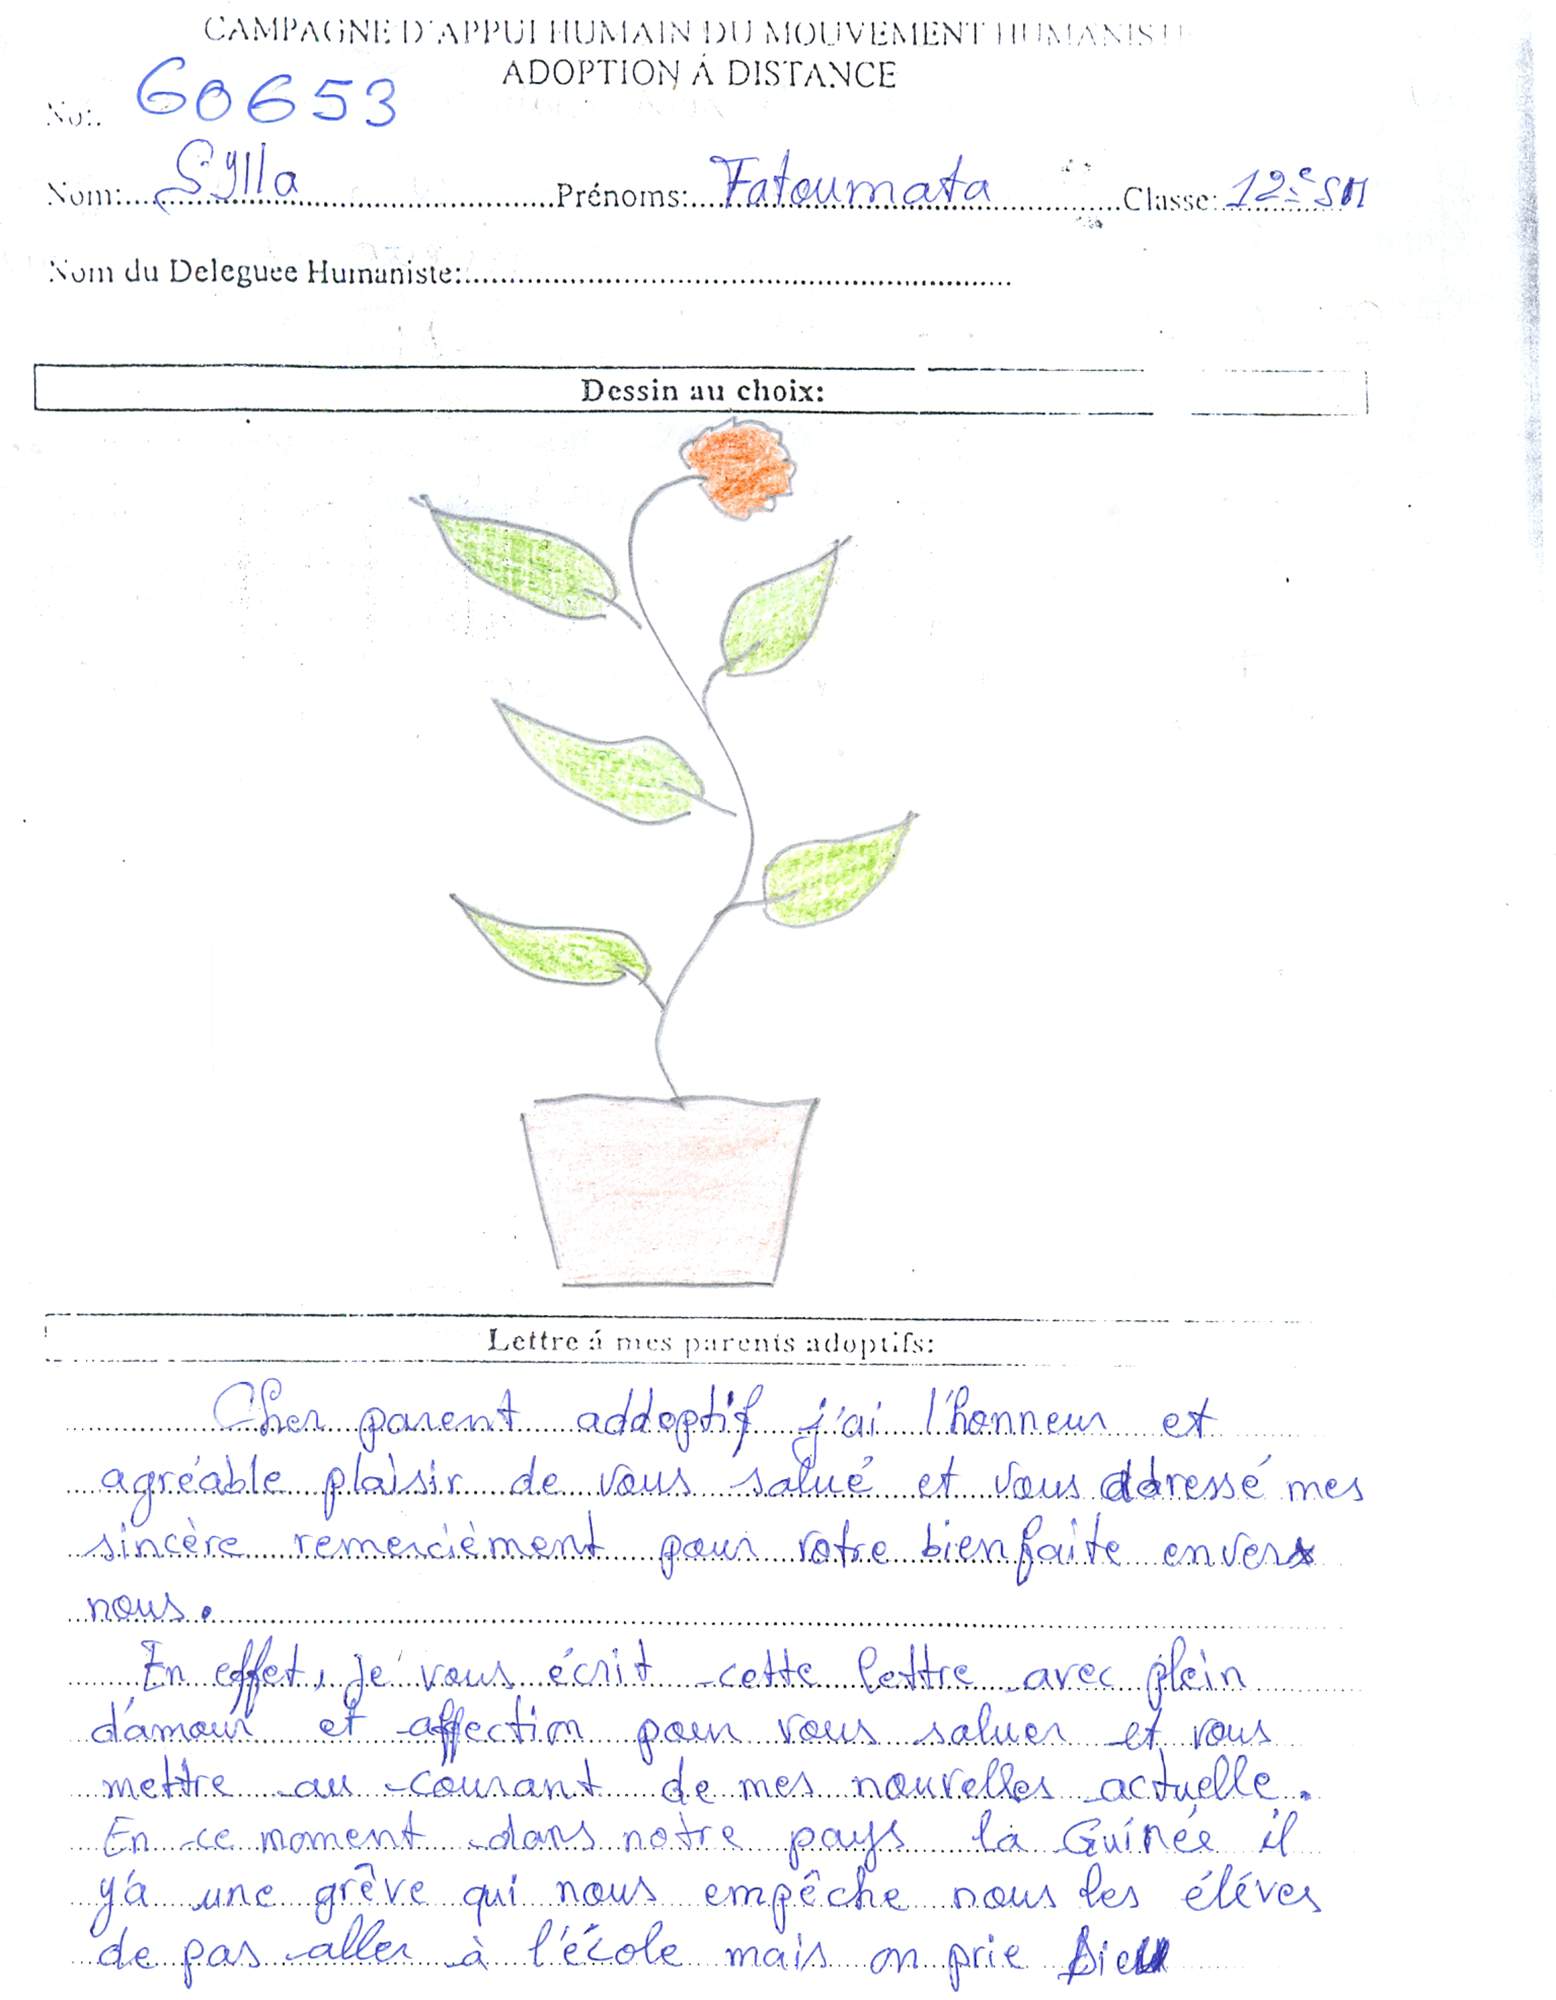 CAMPAGNE D'APPUI HUMAIN DU MOUVEMENT HUMANISTE
ADOPTION Á DISTANCE
No:. 60653
Nom:..... Sylla ..... Prénoms:.... Fatoumata ..... Classe: 12è SM
Nom du Deleguee Humaniste:.....
Dessin au choix:
Lettre á mes parents adoptifs:
Cher parent addoptif j'ai l'honneur et
agréable plaisir de vous salué et vous addressé mes
sincère remerciement pour votre bienfaite envers
nous.
En effet, je vous écrit cette lettre avec plein
d'amour et affection pour vous saluer et vous
mettre au courant de mes nouvelles actuelle.
En ce moment dans notre pays la Guinée il
y'a une grève qui nous empêche nous les éléves
de pas aller à l'école mais on prie Dieu